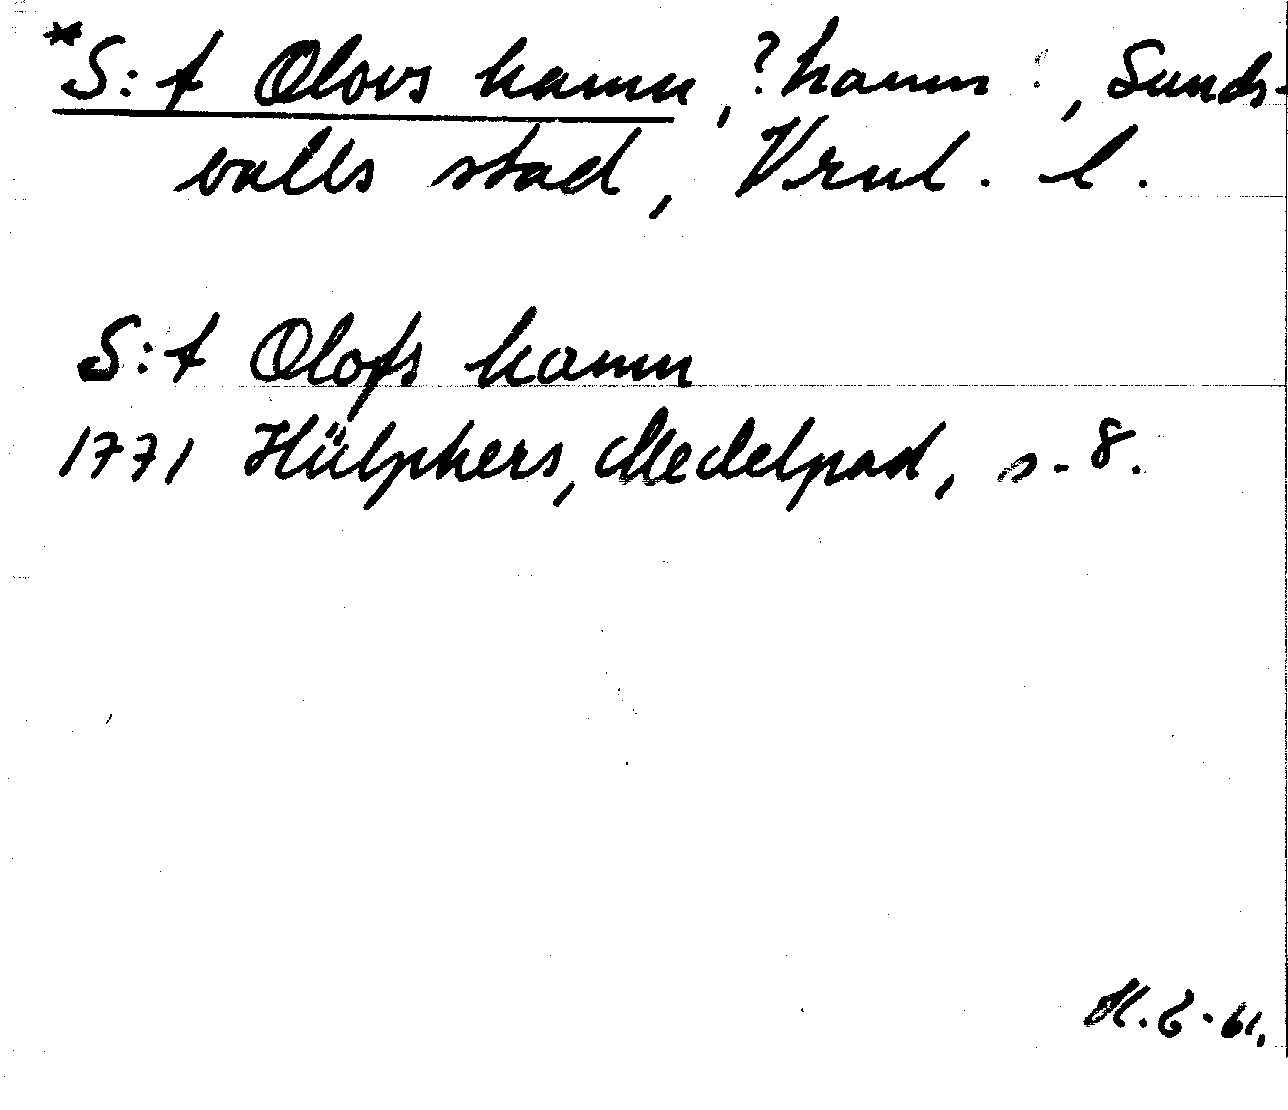 *S:t Olovs hamn, ?hamn, Sunds-
valls stad, Vrnl. l.
S:t Olofs hamn
1771 Hülphers, Medelpad, s. 8.